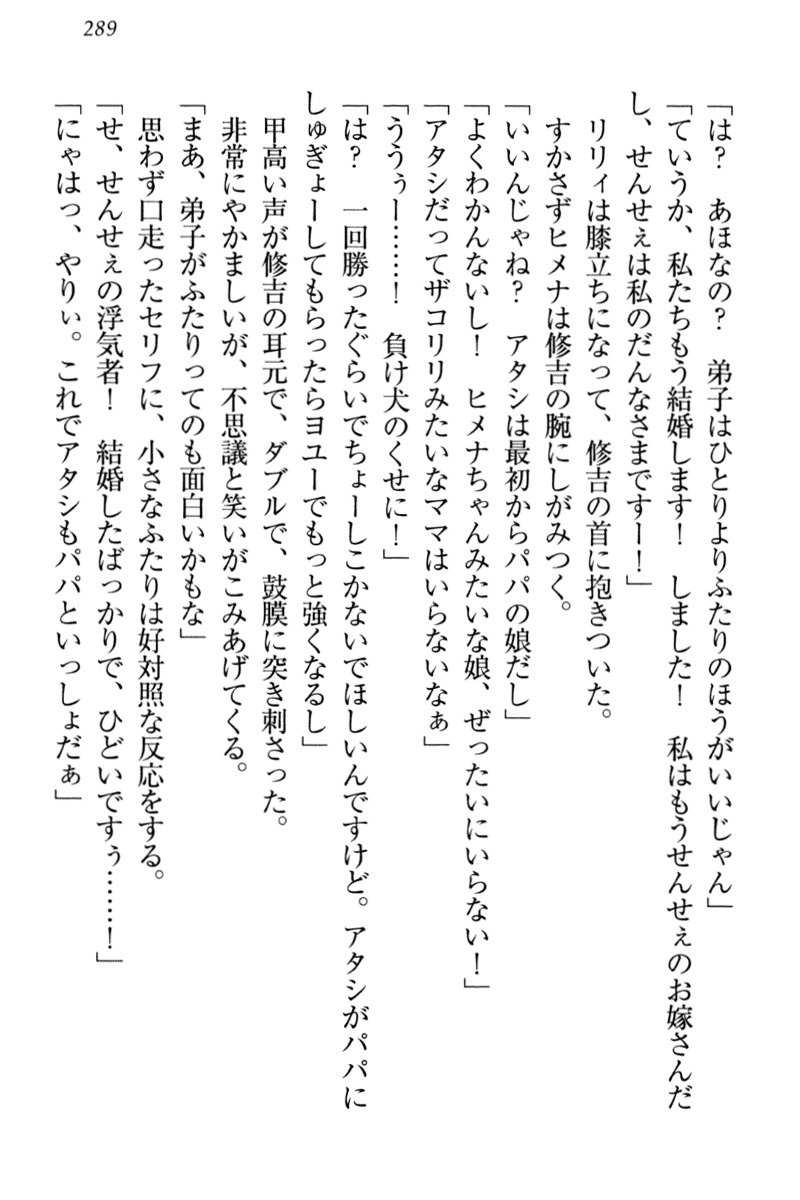 289
「は？　あほなの？　弟子はひとりよりふたりのほうがいいじゃん」
「ていうか、私たちもう結婚します！　しました！　私はもうせんせぇのお嫁さんだ
し、せんせぇは私のだんなさまですー！」
リリィは膝立ちになって、修吉の首に抱きついた。
すかさずヒメナは修吉の腕にしがみつく。
「いいんじゃね？　アタシは最初からパパの娘だし」
「よくわかんないし！　ヒメナちゃんみたいな娘、ぜったいにいらない！」
「アタシだってザコリリみたいなママはいらないなぁ」
「ううぅー……！　負け犬のくせに！」
「は？　一回勝ったぐらいでちょーしこかないでほしいんですけど。アタシがパパに
しゅぎょーしてもらったらヨユーでもっと強くなるし」
甲高い声が修吉の耳元で、ダブルで、鼓膜に突き刺さった。
非常にやかましいが、不思議と笑いがこみあげてくる。
「まあ、弟子がふたりってのも面白いかもな」
思わず口走ったセリフに、小さなふたりは好対照な反応をする。
「せ、せんせぇの浮気者！　結婚したばっかりで、ひどいですぅ……！」
「にゃはっ、やりぃ。これでアタシもパパといっしょだぁ」